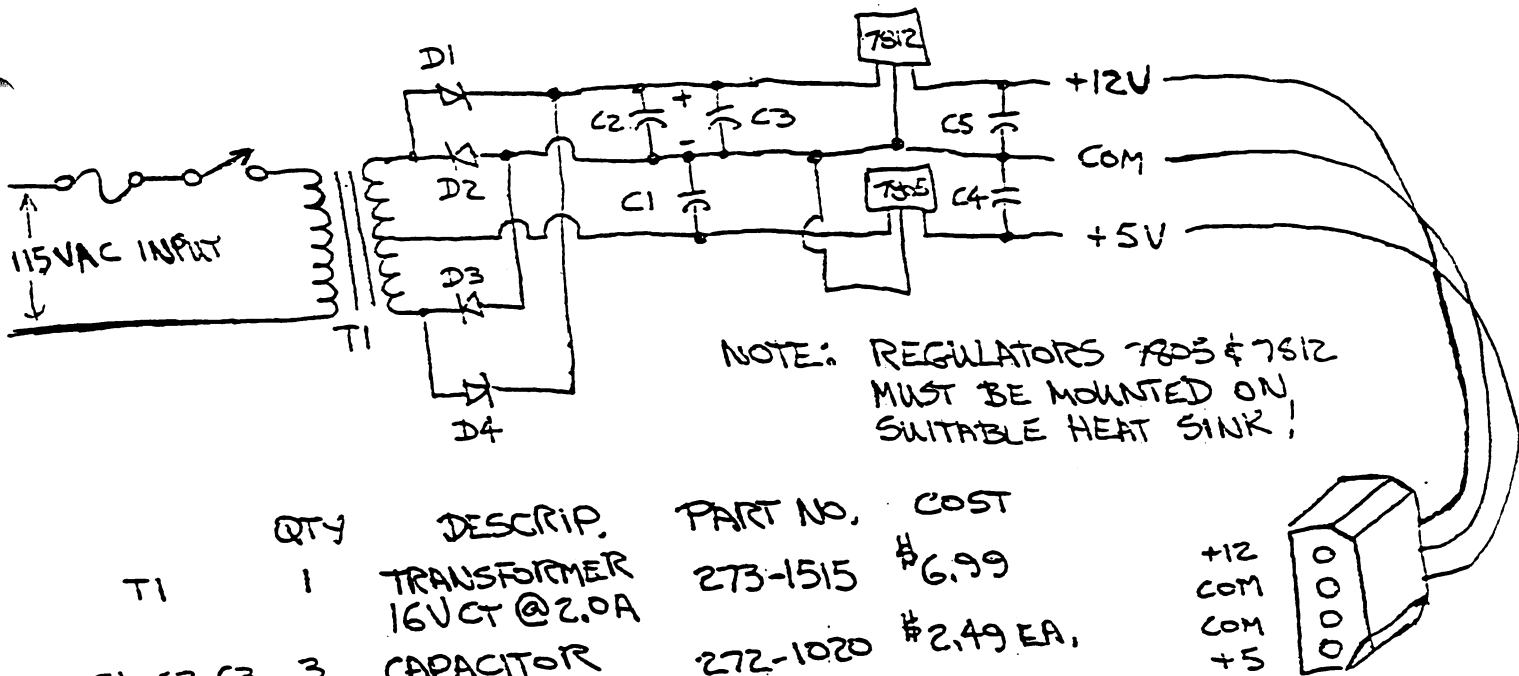 7812
D1
+12V
C2 + C3
C5
-
COM
D2
7805
C1
C4
115VAC INPUT
+5V
D3
T1
D4
NOTE: REGULATORS 7805 & 7812
MUST BE MOUNTED ON
SUITABLE HEAT SINK!
QTY DESCRIP. PART NO. COST
T1 1 TRANSFORMER 273-1515 $6.99
16VCT @ 2.0A
3 CAPACITOR 272-1020 $2.49 EA.
+12
COM
COM
+5